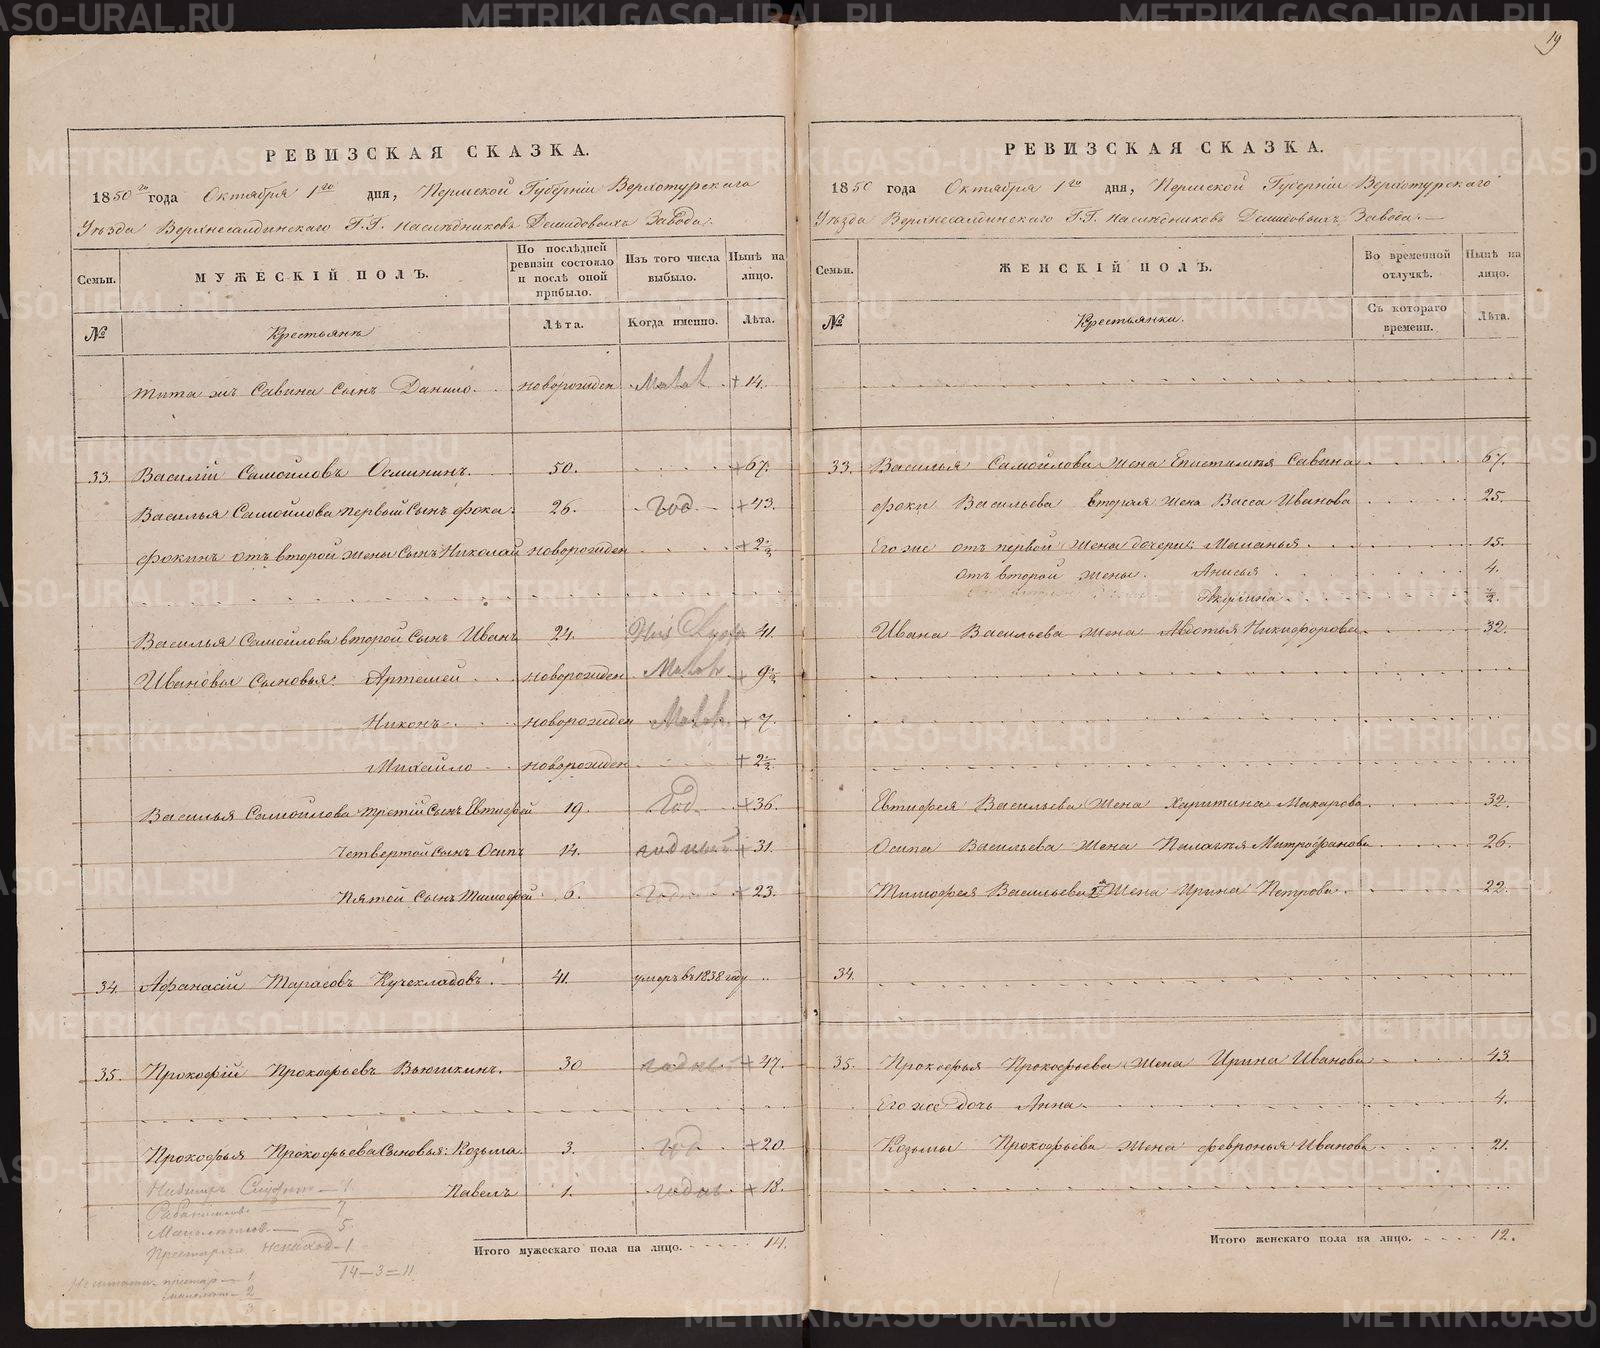 19
РЕВИЗСКАЯ СКАЗКА.
1850 го года Октября 1го дня, Пермской Губерніи Верхотурскаго
Уѣзда Верхнесалдинскаго Г.Г. Наслѣдниковъ Демидовыхъ Завода.
Семьи.
МУЖЕСКІЙ ПОЛЪ.
По послѣдней ревизіи состояло и послѣ оной прибыло.
Изъ того числа выбыло.
Нынѣ на лицо.
№
Крестьянъ
Лѣта.
Когда именно.
Лѣта.
Тита жъ Савина сынъ Данило. новорожден Малол +14.
33. Василій Самойловъ Осминин. 50. +67.
Василья Самойлова первый Сынъ Фока. 26. Год +43.
Фокинъ отъ второй жены Сынъ Николай новорожден +2½
Василья Самойлова второй Сынъ Иванъ 24. 41.
Ивановы Сыновья: Артемей новорожден Малол + 9½
Никонъ новорожден Малол + 7.
Михайло новорожден + 2½
Василья Самойлова третій Сынъ Евтифей 19. Год +36.
Четвертой Сынъ Осипъ 14. годный +31.
Пятой Сынъ Тимофей 6. Год +23.
34. Афанасій Тарасовъ Кучекладовъ. 41. умеръ въ 1838 году
35. Прокофій Прокофьевъ Вьюшкинъ. 30 годный +47.
Прокофья Прокофьева Сыновья: Козьма 3. год +20.
Павелъ 1. +18.
Служит — 1
7
5.
Престарел — 1
14—3=11
престар — 1
2
3
Итого мужескаго пола на лицо. 14.
РЕВИЗСКАЯ СКАЗКА.
1850 года Октября 1го дня, Пермской Губерніи Верхотурскаго
Уѣзда Верхнесалдинскаго Г.Г. Наслѣдниковъ Демидовыхъ Завода.
Семьи.
ЖЕНСКІЙ ПОЛЪ.
Во временной отлучкѣ.
Нынѣ на лицо.
№
Крестьянки.
Съ котораго времени.
Лѣта.
33. Василья Самойлова жена Епистимія Савина 67.
Фоки Васильева вторая жена Васса Иванова 25.
Его же отъ первой жены дочери: Маланья 15.
отъ второй жены. Анисья 4.
Акулина ½.
Ивана Васильева жена Авдотья Никифорова 32.
Евтифея Васильева жена Харитина Макарова 32.
Осипа Васильева жена Палагѣя Митрофанова 26.
Тимофея Васильева 2я жена Ирина Петрова. 22.
34.
35. Прокофья Прокофьева жена Ирина Иванова 43.
Его же дочь Анна 4.
Козьмы Прокофьева жена Февронья Иванова 21.
Итого женскаго пола на лицо. 12.
METRIKI.GASO-URAL.RU